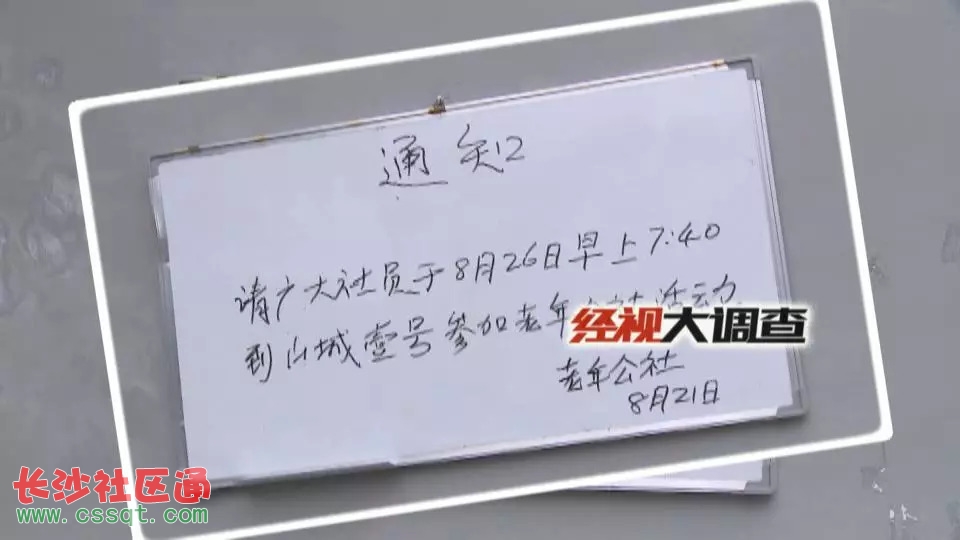 通知
请广大社员于8月26日早上7:40
到山城壹号参加老年公社活动
经视大调查
老年公社
8月21日
长沙社区通
www.cssqt.com